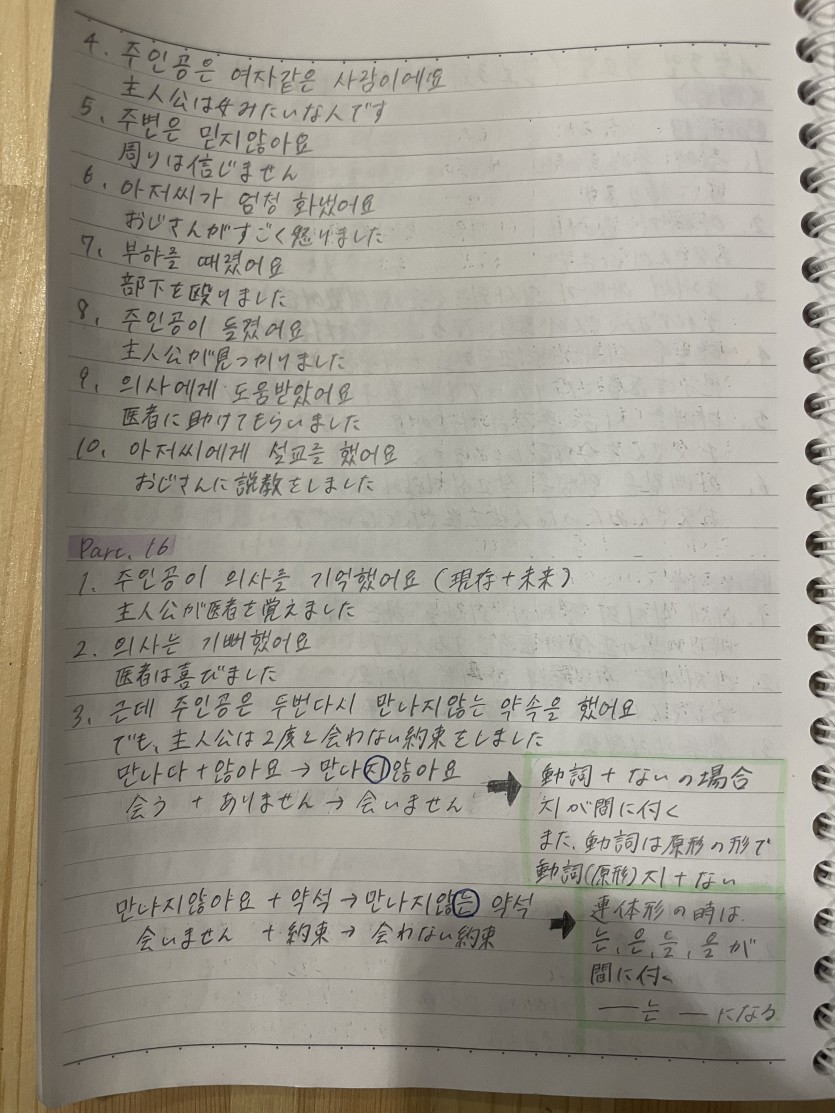 4. 주인공은 여자같은 사람이에요
主人公は女みたいな人です
5. 주변은 믿지않아요
周りは信じません
6. 아저씨가 엄청 화냈어요
おじさんがすごく怒りました
7. 부하를 때렸어요
部下を殴りました
8. 주인공이 들켰어요
主人公が見つかりました
9. 의사에게 도움받았어요
医者に助けてもらいました
10. 아저씨에게 설교를 했어요
おじさんに説教をしました
Parc. 16
1. 주인공이 의사를 기억했어요 (現存+未来)
主人公が医者を覚えました
2. 의사는 기뻐했어요
医者は喜びました
3. 근데 주인공은 두번다시 만나지않는 약속을 했어요
でも、主人公は2度と会わない約束をしました
만나다+않아요→만나지않아요
会う + ありません→会いません
動詞+ないの場合
지が間に付く
また、動詞は原形の形で
動詞(原形)지+ない
만나지않아요+약석→만나지않는 약석
会いません +約束→ 会わない約束
連体形の時は
는,은,들,을が
間に付く
―는 ―になる